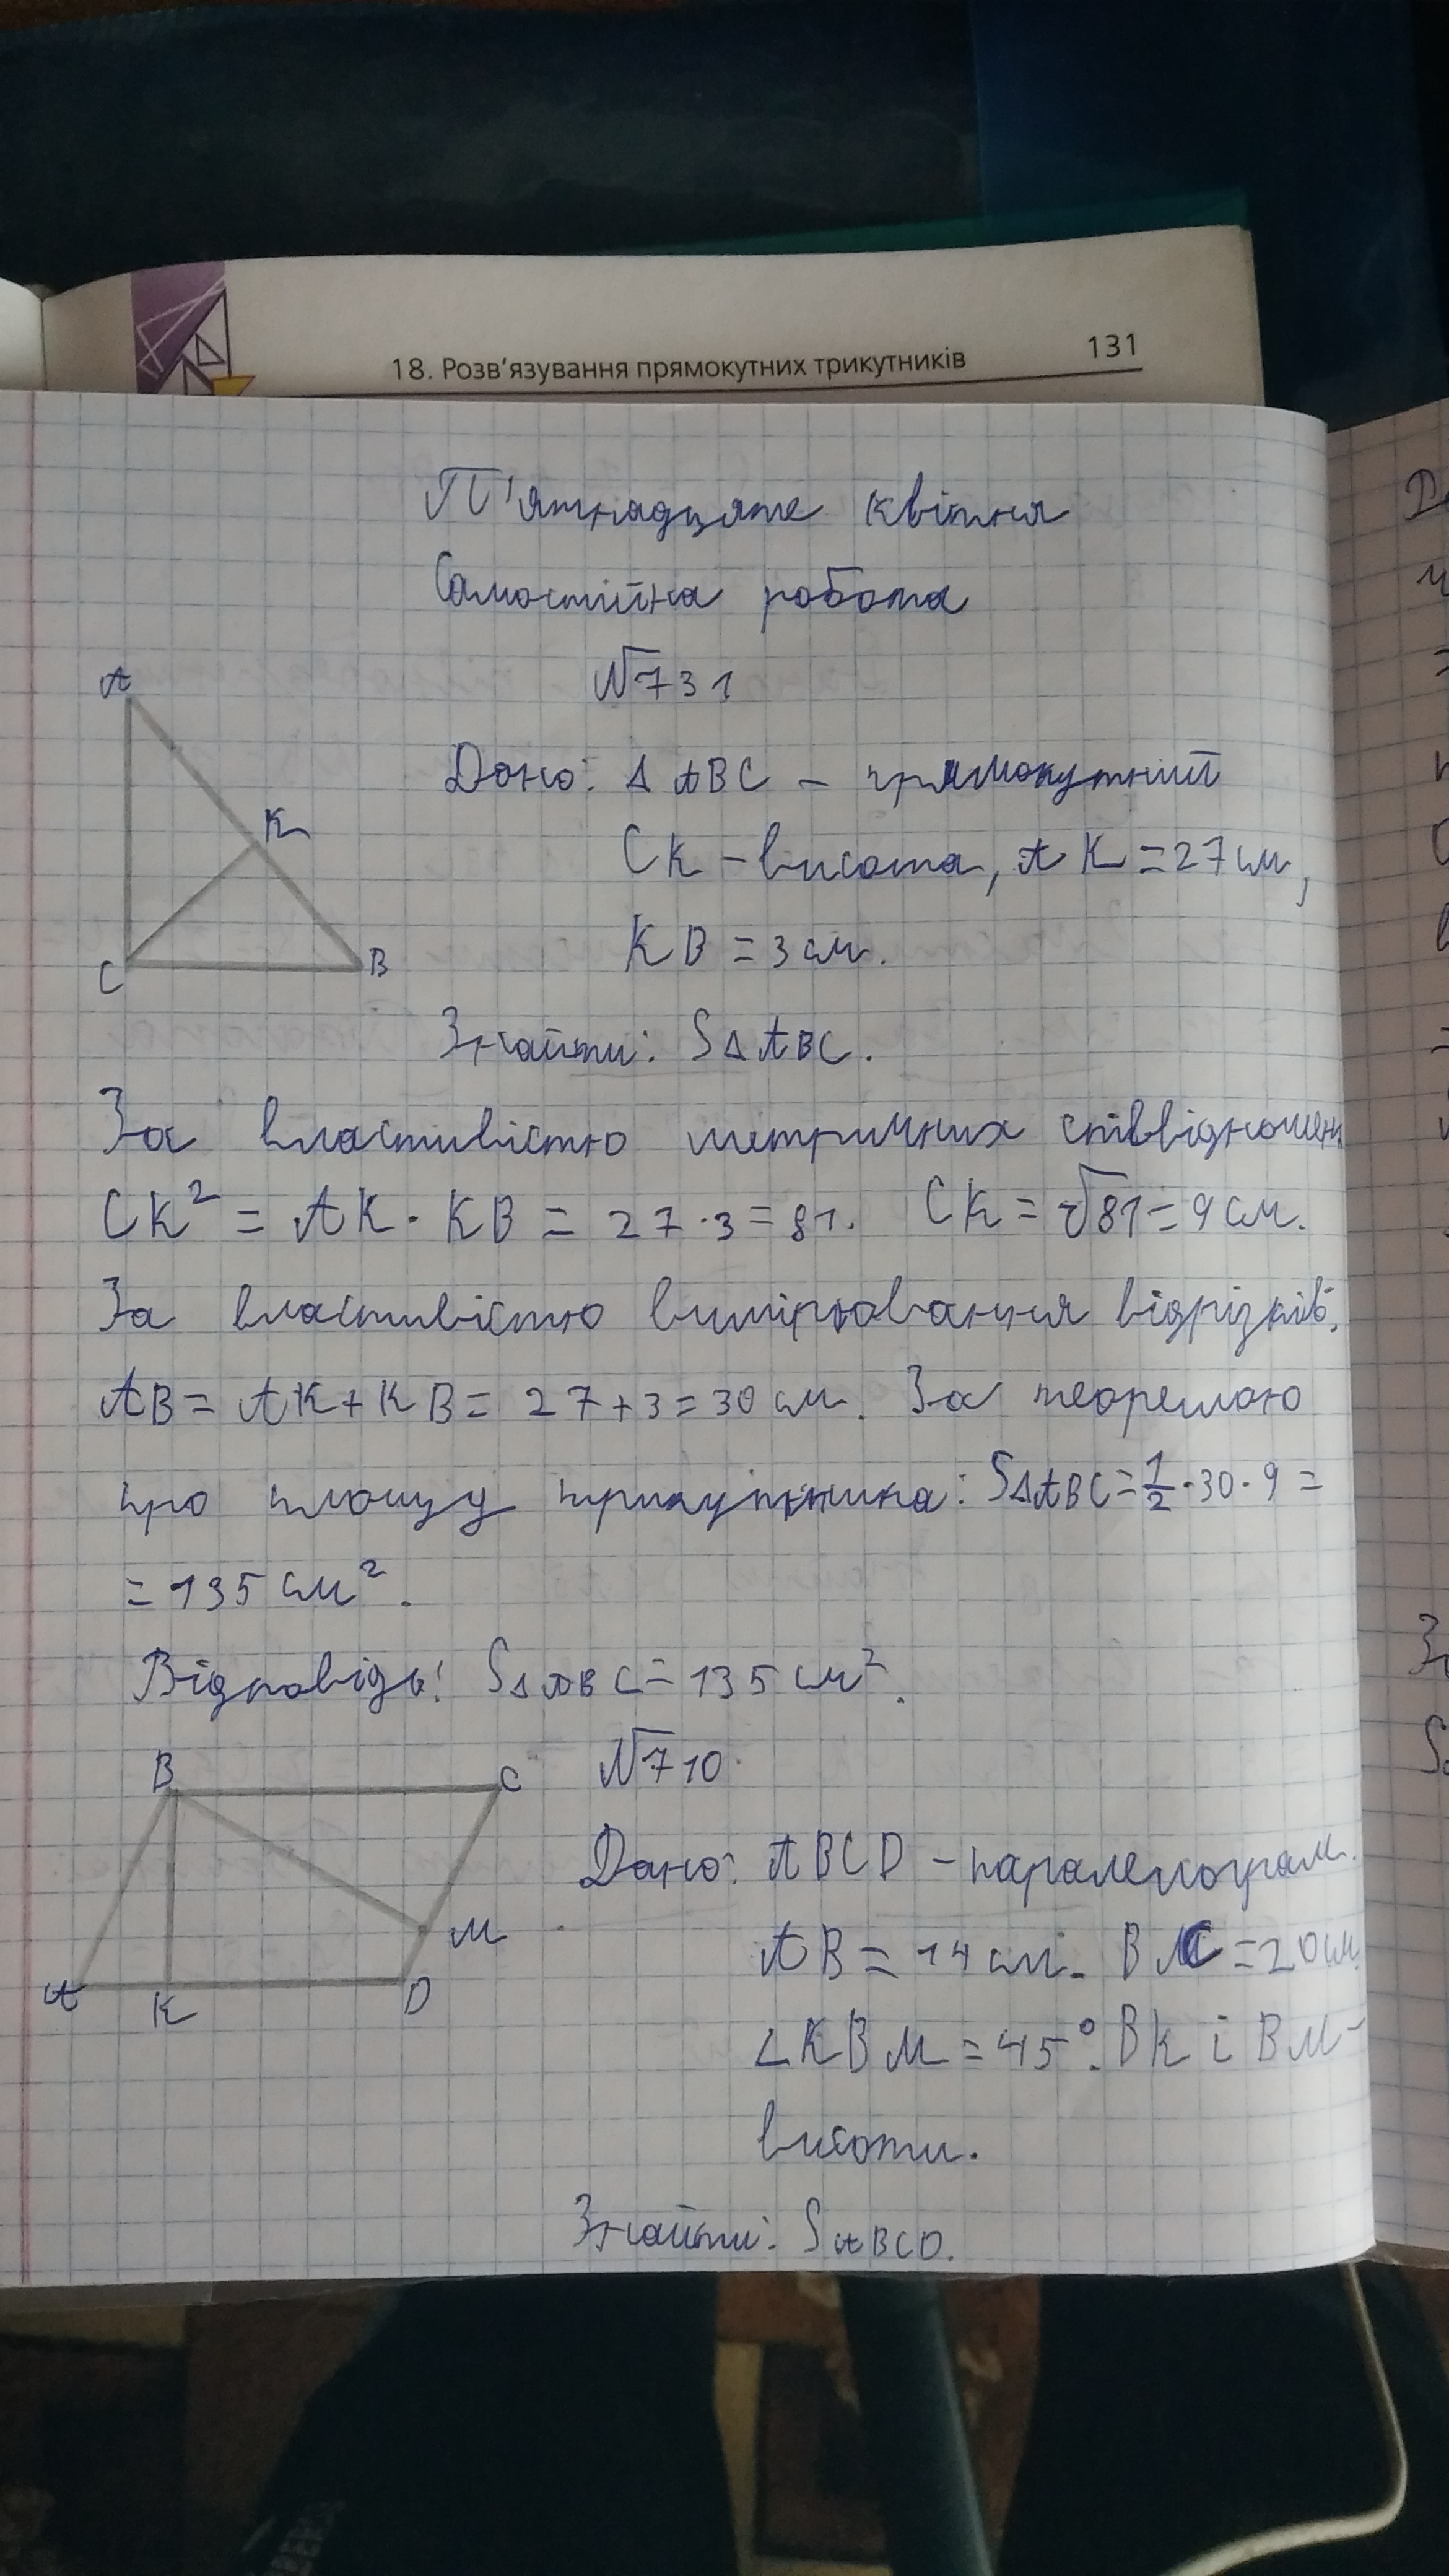 18. Розв'язування прямокутних трикутників 131
П'ятнадцяте квітня
Самостійна робота
№731
A
K
C
B
Дано: Δ ABC – прямокутний
CK – висота, AK = 27 см,
KB = 3 см.
Знайти: SΔABC.
За властивістю метричних співвідношень
CK² = AK · KB = 27 · 3 = 81. CK = √81 = 9 см.
За властивістю вимірювання відрізків,
AB = AK + KB = 27 + 3 = 30 см. За теоремою
про площу трикутника: SΔABC = 1/2 · 30 · 9 =
= 135 см².
Відповідь: SΔABC = 135 см².
№710
B
C
M
A
K
D
Дано: ABCD – паралелограм.
AB = 14 см. BC = 20 см
∠KBM = 45°. BK і BM –
висоти.
Знайти: SABCD.